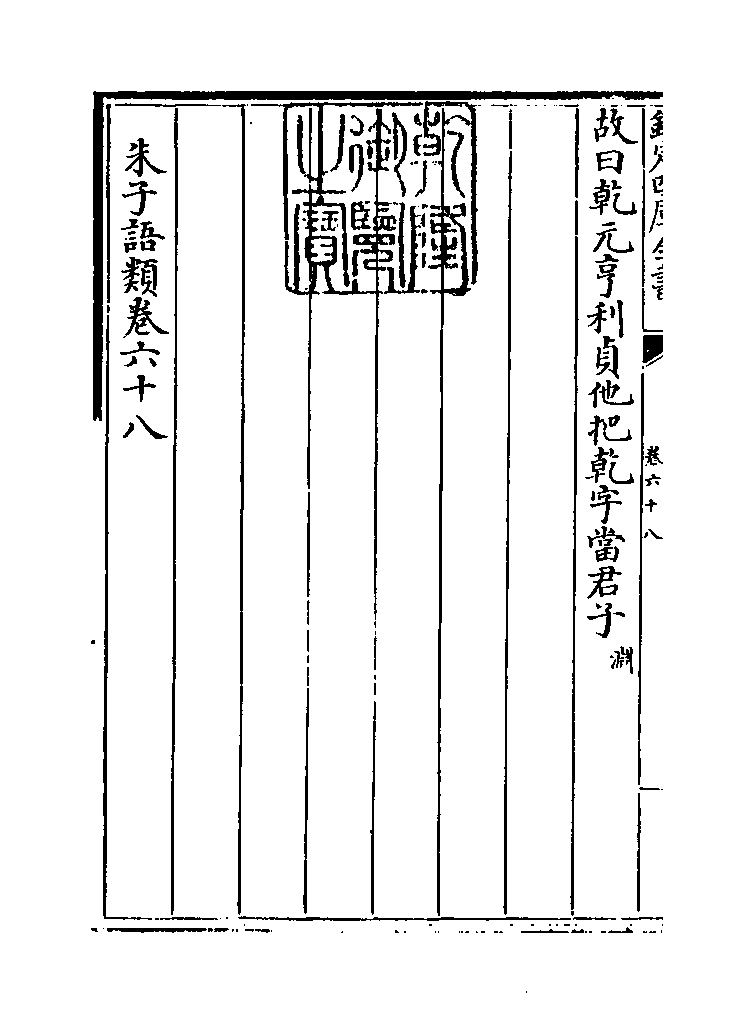 欽定四庫全書
卷六十八
故曰乾元亨利貞他把乾字當君子淵
乾隆御覽之寶
朱子語類卷六十八